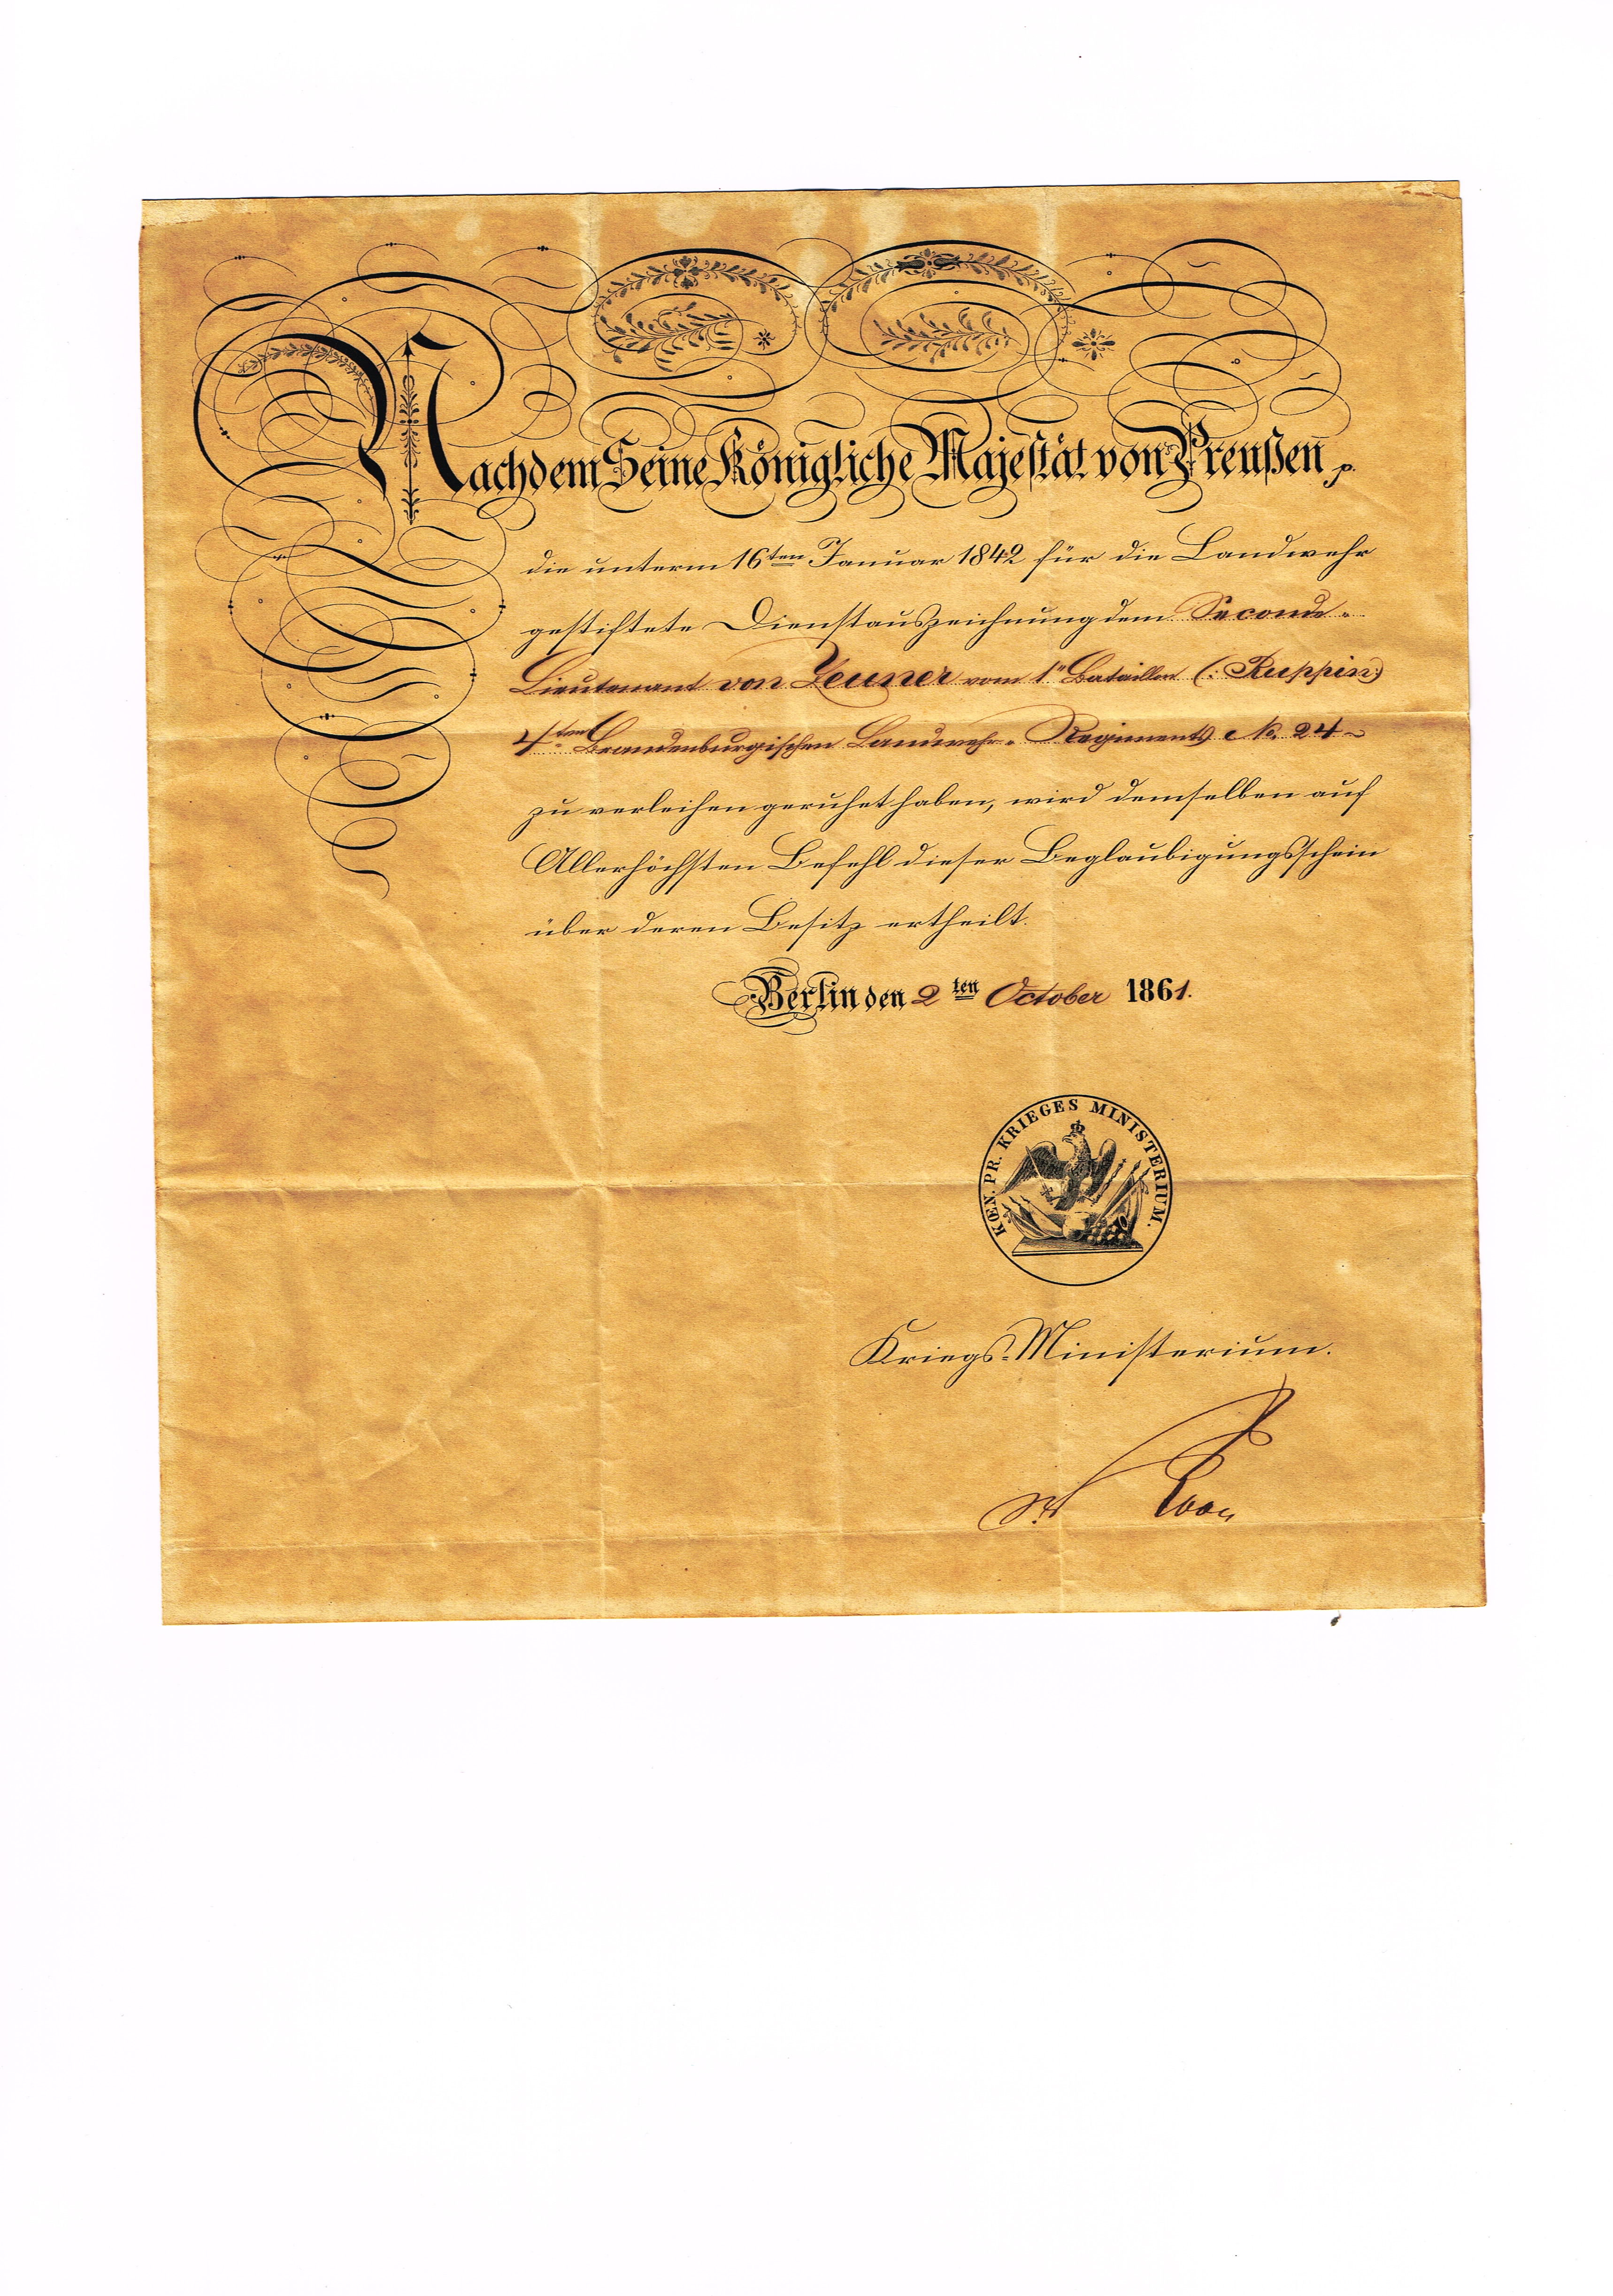 Nachdem Seine Königliche Majestät von Preußen p.
die unterm 16ten Januar 1842 für die Landwehr
gestiftete Dienstauszeichnung dem Seconde-
Lieutenant von Zeuner vom 1n Bataillon (: Ruppin:)
4ten Brandenburgischen Landwehr-Regiments No. 24
zu verleihen geruhet haben, wird demselben auf
Allerhöchsten Befehl dieser Beglaubigungsschein
über deren Besitz ertheilt.
Berlin den 2ten October 1861.
KŒN. PR. KRIEGES MINISTERIUM.
Kriegs-Ministerium.
v. Roon